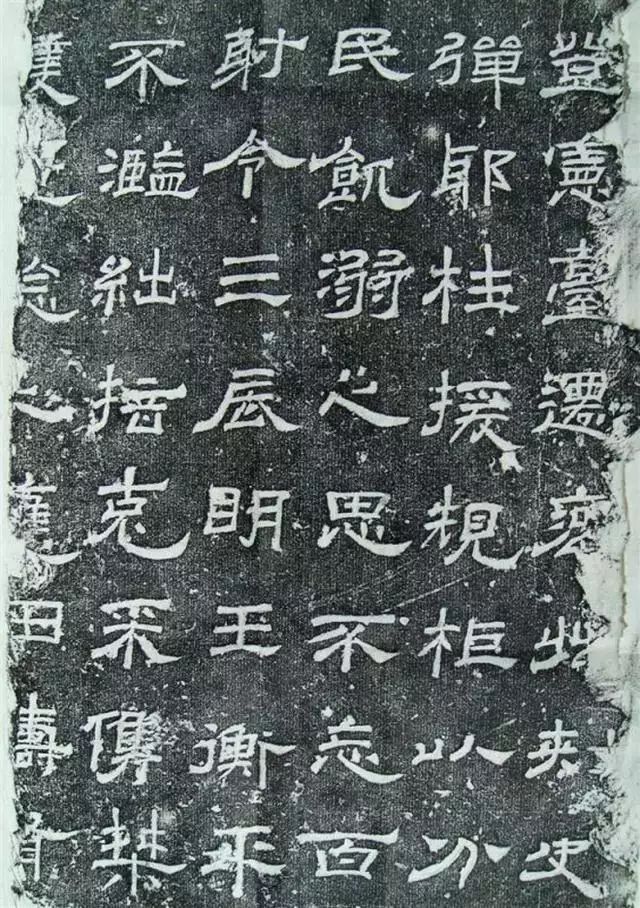 登憲臺遷兗州刺史
彈耶枉援規柜以分
民飢溺之思不忘百
射令三辰明王衡平
不濫絀掊克采儁桀
念之田壽